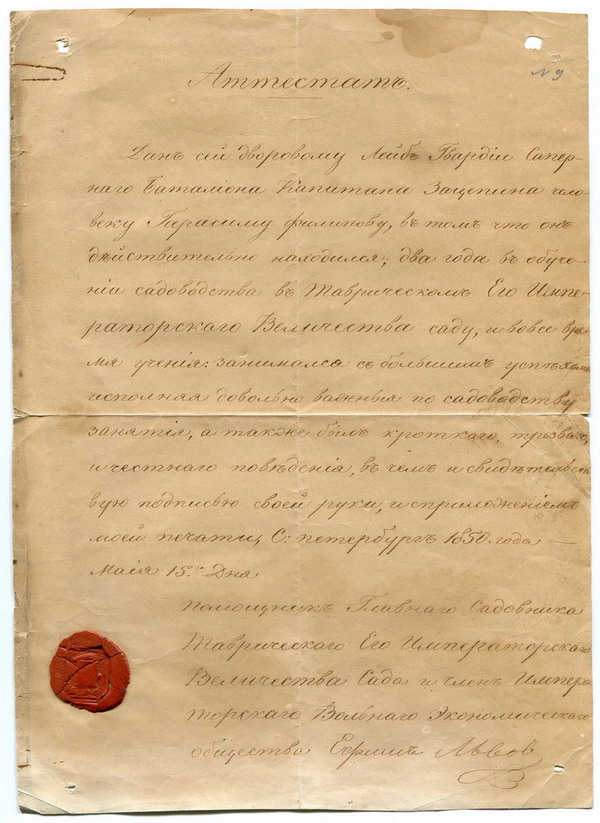 № 9
Аттестатъ.
Данъ сей дворовому Лейбъ Гвардіи Сапер-
наго Баталіона Капитана Зацепина чело-
веку Гарасиму Филипову, въ томъ что онъ
дѣйствительно находился, два года въ обуче-
ніи садоводства въ Таврическомъ Его Импе-
раторскаго Величества саду, и вовсе вре-
мя ученія: занимался съ большимъ успѣхомъ
исполняя довольно важныя по садоводству
занятія, а также былъ кроткаго, трезваго,
и честнаго поведѣнія, въ чемъ и свидѣтельст-
вую подписью своей руки, и приложеніемъ
моей печати, С: петербургъ 1850. года —
Маія 15.го Дня
Помощникъ Главнаго Садовника
Таврическаго Его Императорскаго
Величества Сада и членъ Импера
торскаго Вольнаго Экономическаго
общества Ефимъ Львов